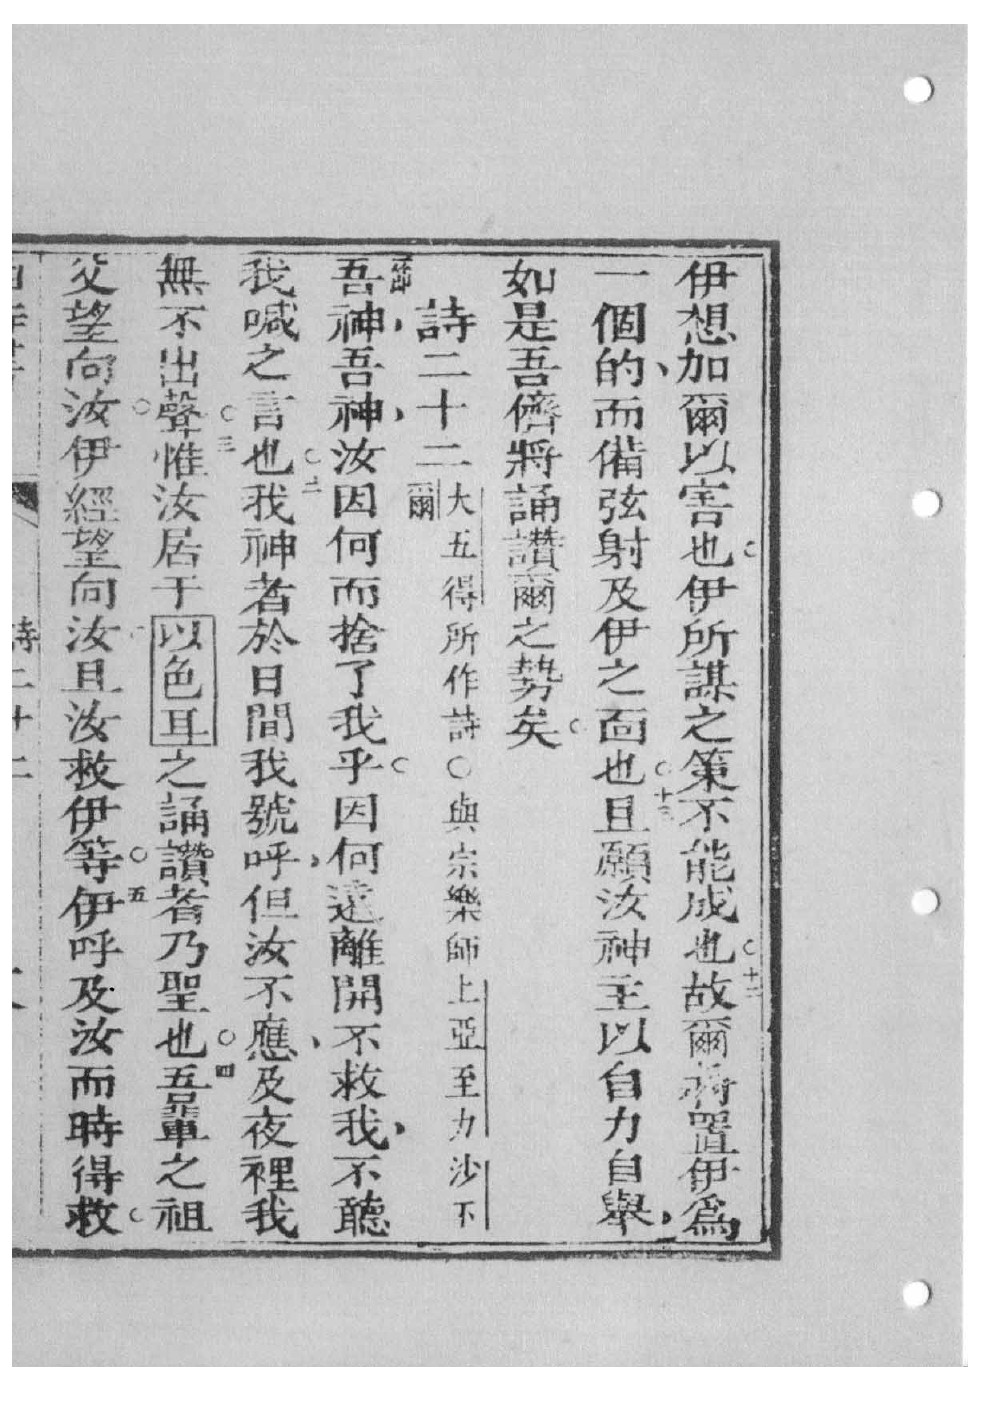 伊想加爾以害也伊所謀之策不能成也○十二故爾將置伊爲
一個的而備弦射及伊之面也○十三且願汝神主以自力自舉
如是吾儕將誦讚爾之勢矣
詩二十二 大五得所作詩○與宗樂師上亞至力沙下
爾
一節 吾神吾神汝因何而捨了我乎因何遠離開不救我不聽
我喊之言也○二我神者於日間我號呼但汝不應及夜裡我
無不出聲○三惟汝居于以色耳之誦讚者乃聖也○四吾輩之祖
父望向汝○伊經望向汝且汝救伊等○五伊呼及汝而時得救
詩二十二